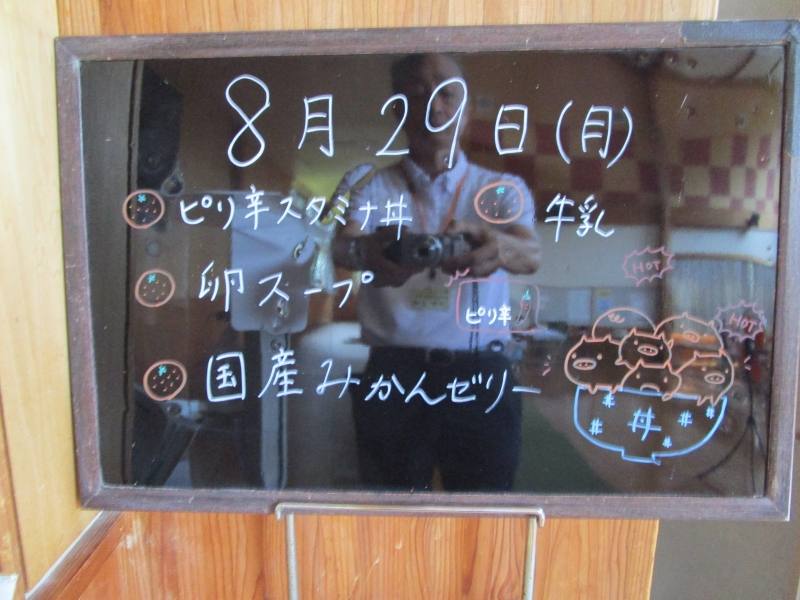 8月29日(月)
ピリ辛スタミナ丼
牛乳
卵スープ
国産みかんゼリー
ピリ辛
HOT
HOT
丼